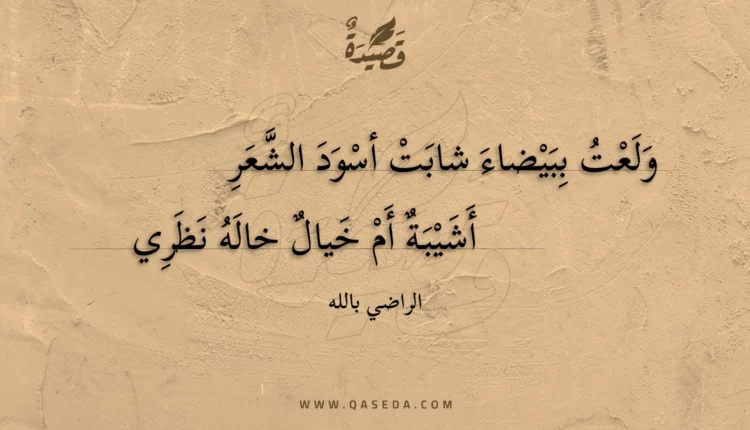 قَصِيْدَةٌ
وَلَعْتُ بِبَيْضاءَ شابَتْ أسْوَدَ الشَّعَرِ
أَشَيْبَةٌ أَمْ خَيالٌ خالَهُ نَظَرِي
الراضي بالله
WWW.QASEDA.COM